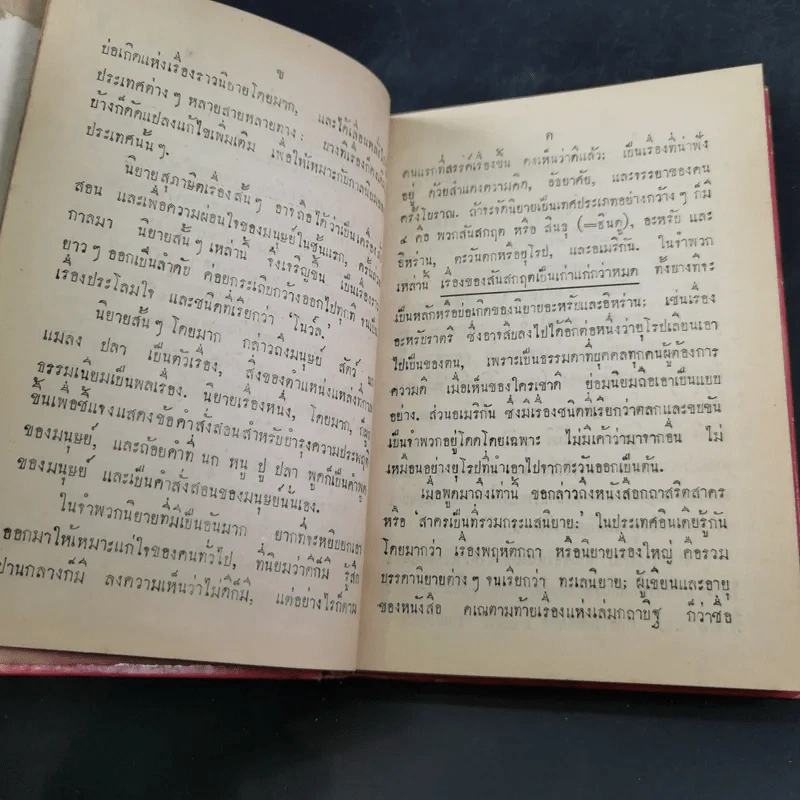 ข
บ่อเกิดแห่งเรื่องราวนิยายโดยมาก, และได้เลื่อน
ประเทศต่าง ๆ หลายสายหลายทาง: บางที่เรื่องก็
บ้างก็ดัดแปลงแก้ไขเพิ่มเติม เพื่อให้เหมาะกับกาลนิยม
ประเทศนั้นๆ.
นิยายสุภาษิตเรื่องสั้นๆ อาจถือได้ว่าเป็นเครื่อง
สอน และเพื่อความผ่อนใจของมนุษย์ในชั้นแรก, ครั้น
กาลมา นิยายสั้นๆ เหล่านี้ จึ่งเจริญขึ้น เป็นเรื่องราว
ยาวๆ ออกเป็นลำดับ คอยกระเถิบกว้างออกไปทุกที จน
เรื่องประโลมใจ และชนิดที่เรียกว่า 'โนว์ล'
นิยายสั้นๆ โดยมาก กล่าวถึงมนุษย์ สัตว์ นก
แมลง ปลา เป็นตัวเรื่อง, สิ่งของตำแหน่งแหล่งที่
ธรรมเนียมเป็นพลเรื่อง. นิยายเรื่องหนึ่ง, โดยมาก,
ขึ้นเพื่อชี้แจงแสดงข้อคำสั่งสอนสำหรับบำรุงความประพฤติ
ของมนุษย์, และถ้อยคำที่ นก หนู ปู ปลา พูดก็เป็นคำพูด
ของมนุษย์ และเป็นคำสั่งสอนของมนุษย์นั้นเอง.
ในจำพวกนิยายที่มีเป็นอันมาก ยากที่จะหยิบยกเอา
ออกมาให้เหมาะแก่ใจของคนทั่วไป, ที่นิยมว่าดีก็มี รู้สึก
ปานกลางก็มี ลงความเห็นว่าไม่ดีก็มี, แต่อย่างไรก็ตาม
ค
คนแรกที่สรรค์เรื่องขึ้น คงเห็นว่าดีแล้ว: เป็นเรื่องที่น่าฟัง
อยู่ ด้วยสำแดงความคิด, อัธยาศัย, และจรรยาของคน
ครั้งโบราณ. ถ้าจะจัดนิยายเป็นเทศประเภทอย่างกว้าง ๆ ก็มี
๔ คือ พวกสันสกฤต หรือ สินธุ (=ฮินดู), อะหรับ และ
อิหร่าน, ตะวันตกหรือยุโรป, และอเมริกัน. ในจำพวก
เหล่านี้ เรื่องของสันสกฤตเป็นเก่าแก่กว่าหมด ทั้งบางที่จะ
เป็นหลักหรือบ่อเกิดของนิยายอะหรับและอิหร่าน: เช่นเรื่อง
อะหรับราตรี ซึ่งอาจสืบลงไปได้อีกต่อหนึ่งว่ายุโรปเลียนเอา
ไปเป็นของตน, เพราะเป็นธรรมดาที่บุคคลทุกคนผู้ต้องการ
ความดี เมื่อเห็นของใครเข้าดี ย่อมนิยมถือเอาเป็นแบบ
อย่าง. ส่วนอเมริกัน ซึ่งมีเรื่องชนิดที่เรียกว่าตลกและขบขัน
เป็นจำพวกอยู่โดดโดยเฉพาะ ไม่มีเค้าว่ามาจากอื่น ไม่
เหมือนอย่างยุโรปที่นำเอาไปจากตะวันออกเป็นต้น.
เมื่อพูดมาถึงเท่านี้ ขอกล่าวถึงหนังสือกถาสริตสาคร
หรือ 'สาครเป็นที่รวมกระแสนิยาย:' ในประเทศอินเดียรู้กัน
โดยมากว่า เรื่องพฤหัตกถา หรือนิยายเรื่องใหญ่ คือรวม
บรรดานิยายต่างๆ จนเรียกว่า ทะเลนิยาย; ผู้เขียนและอายุ
ของหนังสือ คเณตามท้ายเรื่องแห่งเล่มกถาปีฐ ก็ว่าชื่อ